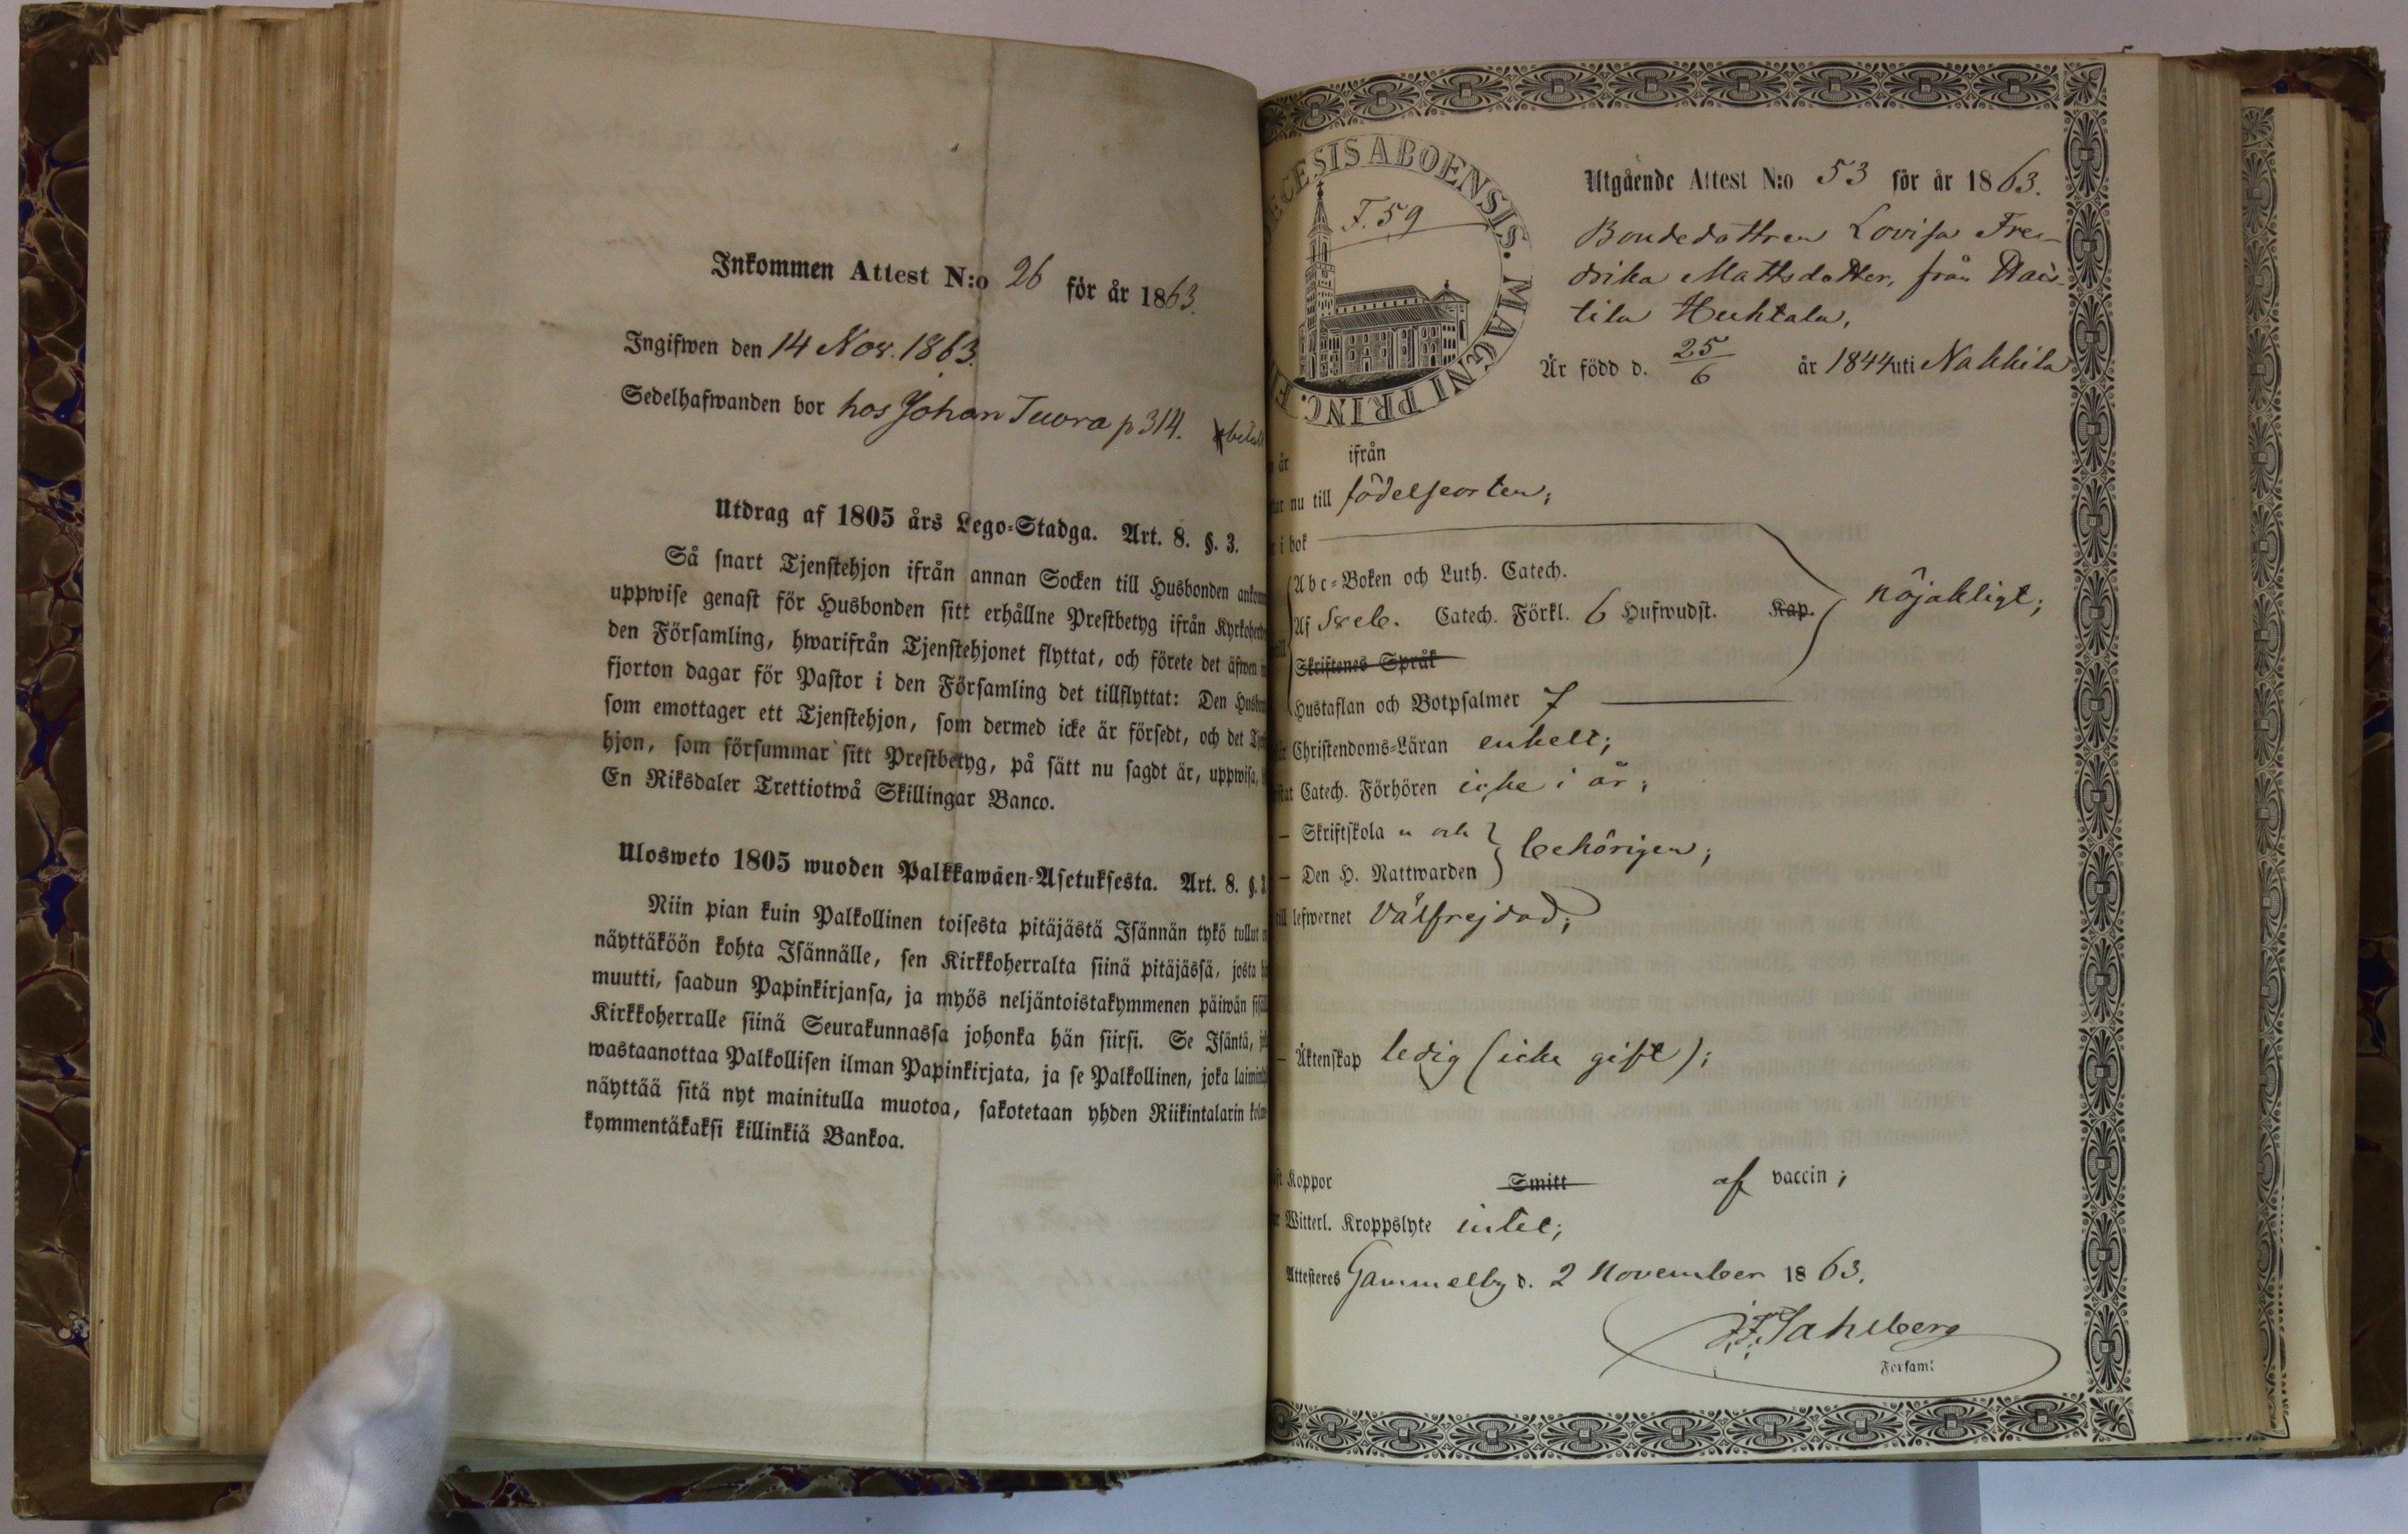 Inkommen Attest N:o 26 för år 1863.
Ingifwen den 14 Nov. 1863.
Sedelhafwanden bor hos Johan Tuora p 314.
Utdrag af 1805 års Lego-Stadga. Art. 8. §. 3.
Så snart Tjenstehjon ifrån annan Socken till Husbonden
uppwise genast för Husbonden sitt erhållne Prestbetyg ifrån
den Församling, hwarifrån Tjenstehjonet flyttat, och förete det äfwen
fjorton dagar för Pastor i den Församling det tillflyttat: Den
som emottager ett Tjenstehjon, som dermed icke är försedt, och det
hjon, som försummar sitt Prestbetyg, på sätt nu sagdt är, uppwisa,
En Riksdaler Trettiotwå Skillingar Banco.
Ulosweto 1805 wuoden Palkkawäen-Asetuksesta. Art. 8. §.
Niin pian kuin Palkollinen toisesta pitäjästä Isännän tykö tullut
näyttäköön kohta Isännälle, sen Kirkkoherralta siinä pitäjässä, josta
muutti, saadun Papinkirjansa, ja myös neljäntoistakymmenen päiwän
Kirkkoherralle siinä Seurakunnassa johonka hän siirsi. Se Isäntä,
wastaanottaa Palkollisen ilman Papinkirjata, ja se Palkollinen, joka
näyttää sitä nyt mainitulla muotoa, sakotetaan yhden Riikintalarin
kymmentäkaksi killinkiä Bankoa.
CESIS ABOENSIS. MAGNI PRINC. F
F. 59
Utgående Attest N:o 53 för år 1863.
Bondedottren Lovisa Fre-
drika Mattsdotter, från Hais-
tila Huhtala,
Är född d. 25/6 år 1844 uti Nakkila
år ifrån
nu till födelseorten;
i bok
Abc-Boken och Luth. Catech.
Af Sveb. Catech. Förkl. 6 Hufwudst. Kap. nöjaktigt;
Skriftenes Språk
Hustaflan och Botpsalmer 7
Christendoms-Läran enkelt;
Catech. Förhören icke i år;
— Skriftskola n och
— Den H. Nattwarden behörigen;
till lefwernet välfrejdad;
— Äktenskap ledig (icke gift);
Koppor Smitt af vaccin;
Witterl. Kroppslyte intet;
Attesteras Gammelby d. 2 November 1863.
J. F. Sahlberg
Församl